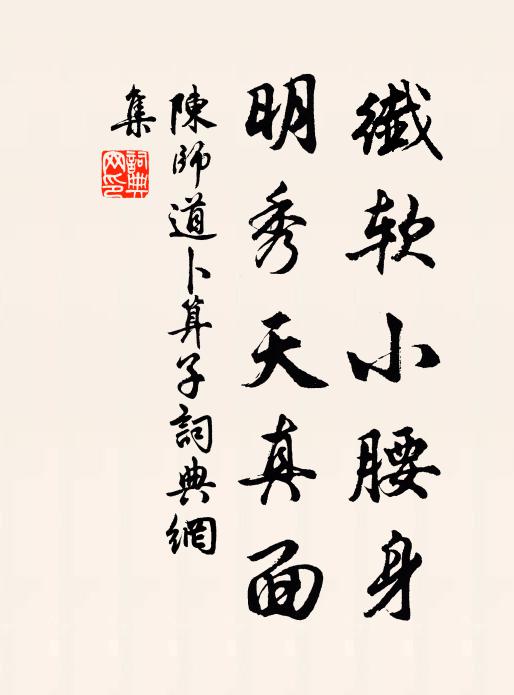 纖软小腰身
明秀天真面
陳師道卜算子詞典網
集
詞典網印